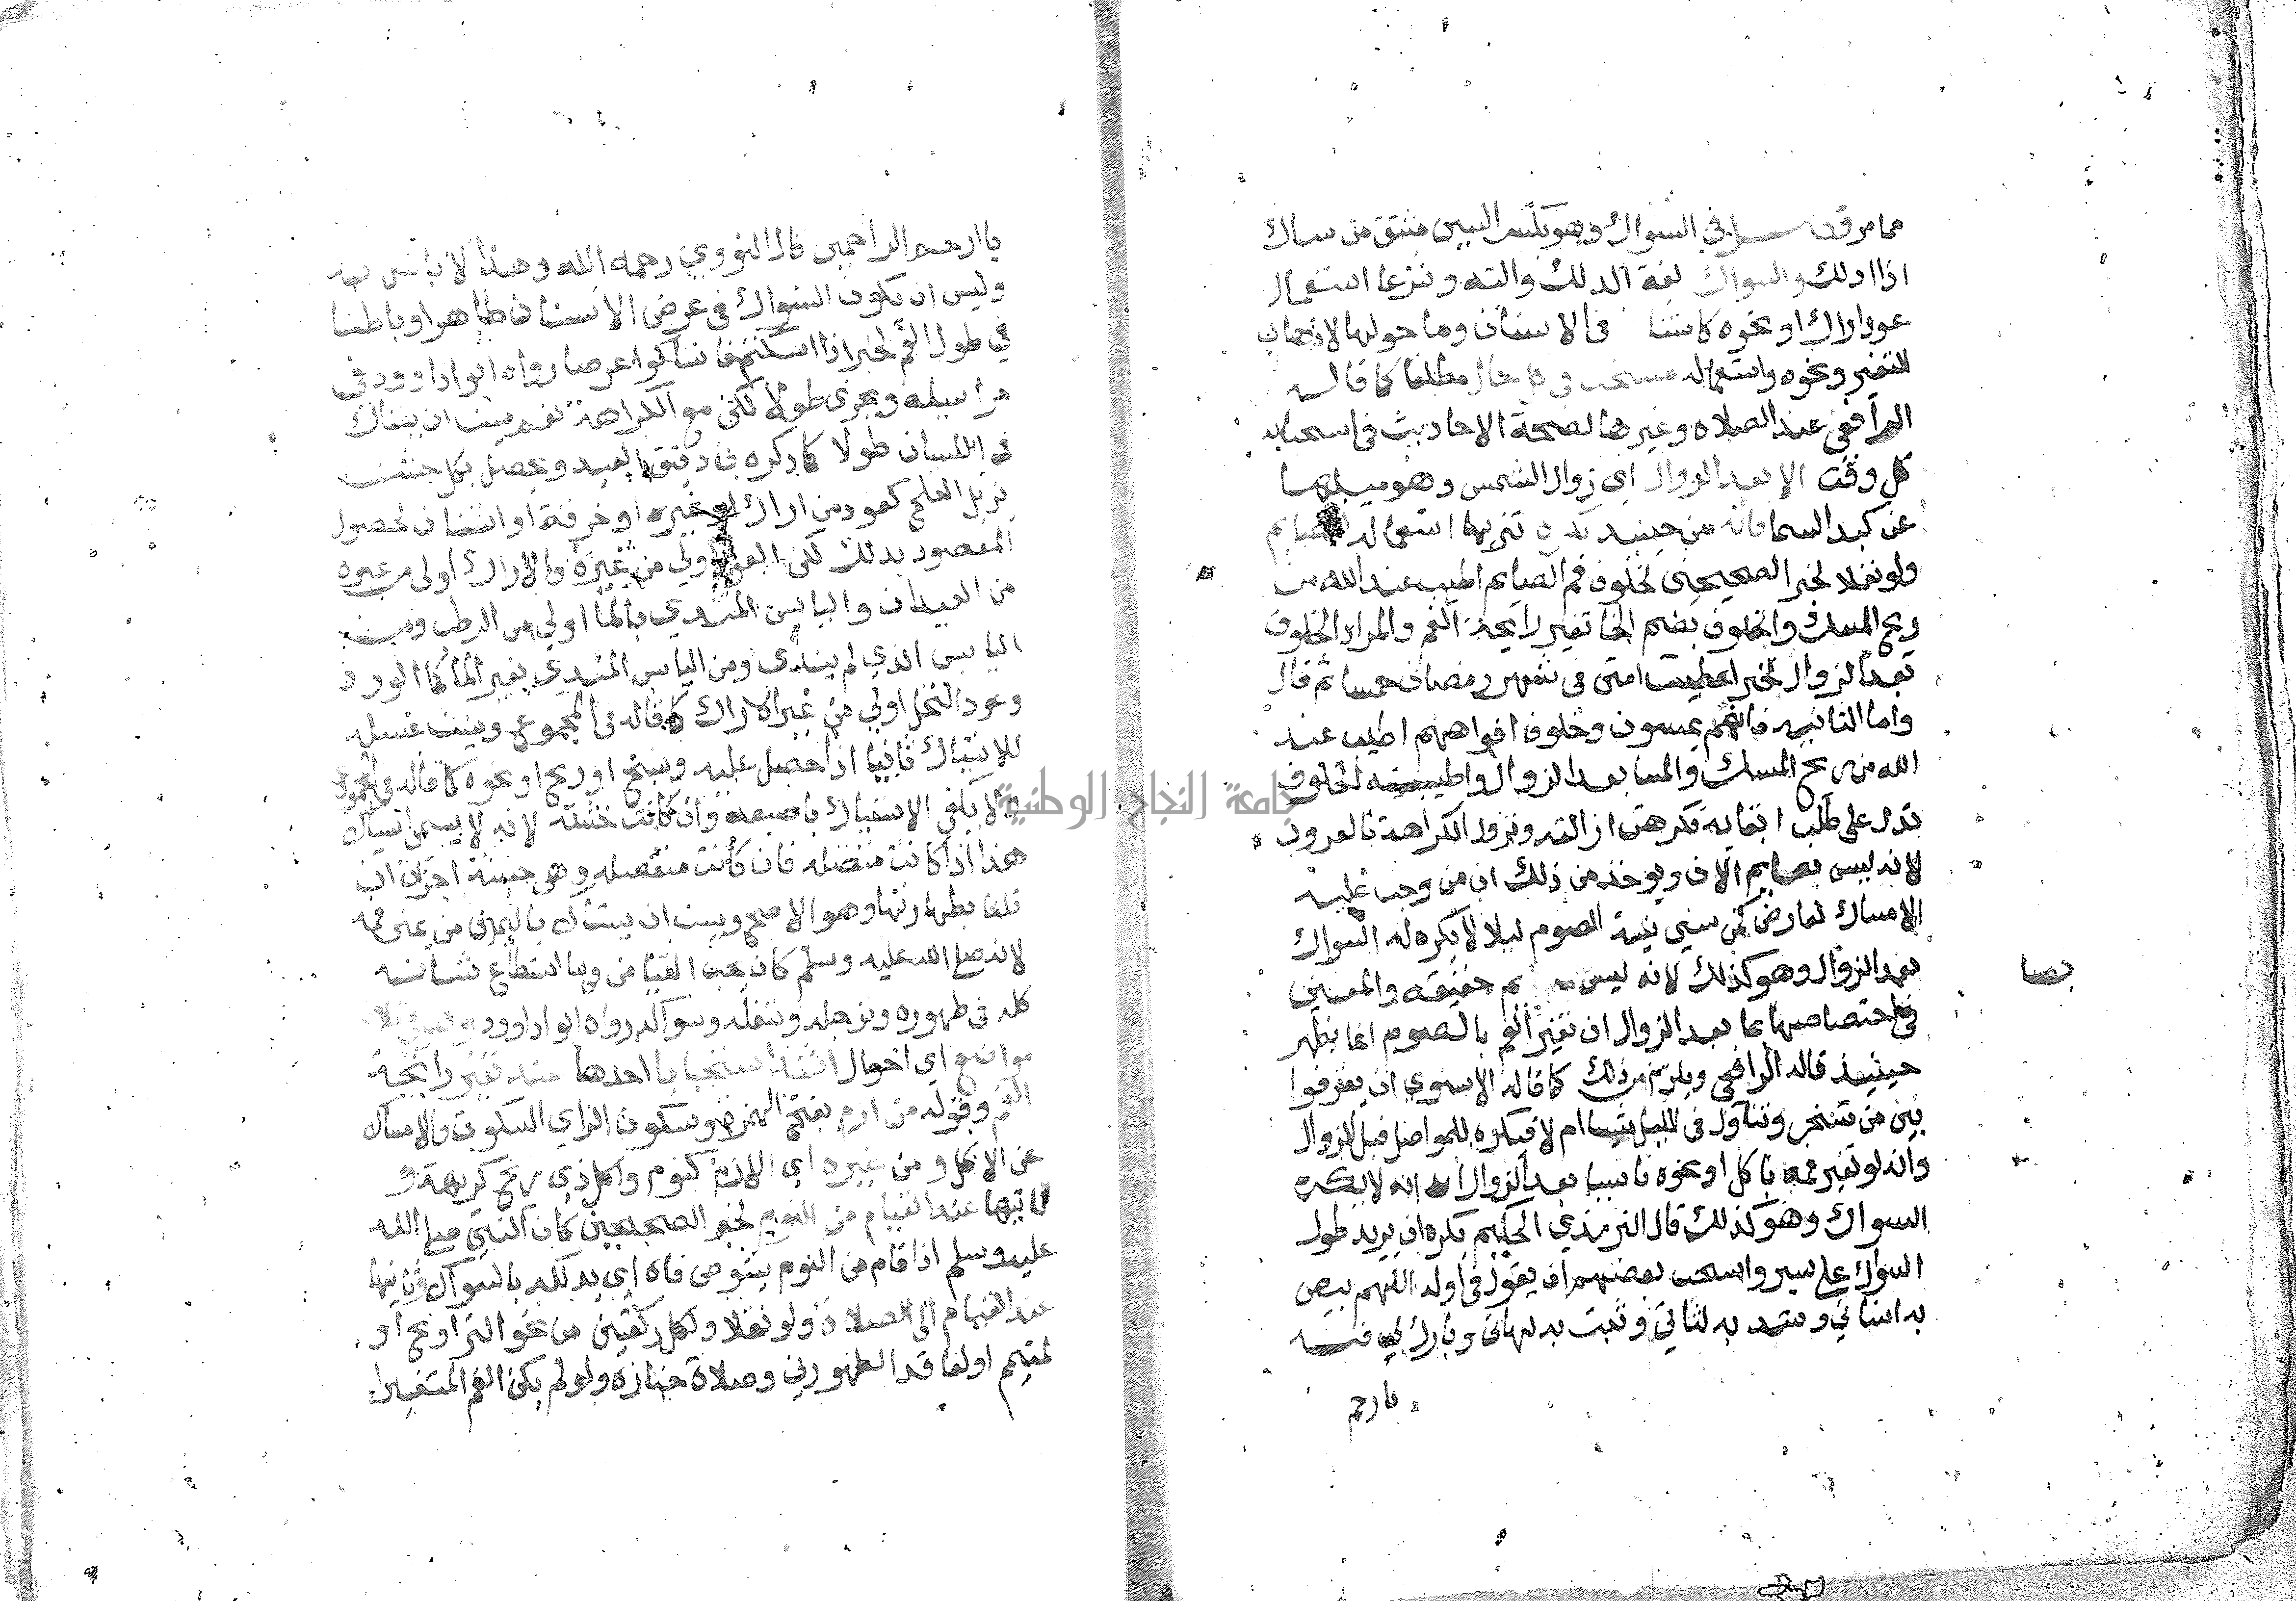 مما مر فصل في السواك وهو بكسر السين مشتق من ساك
اذا دلك والسواك لغة الدلك والته وشرعا استعمال
عود اراك او نحوه كاشنا في الاسنان وما حولها لاذهاب
التغير ونحوه واستعماله مستحب في كل حال مطلقا كما قاله
الرافعي عند الصلاه وغيرها لصحة الاحاديث في استحبابه
كل وقت الا بعد الزوال اي زوال الشمس وهو ميلها
عن كبد السما فانه من حينيد يكره تنزيها استعماله للصايم
ولو نفلا لخبر الصحيحين لخلوف فم الصايم اطيب عند الله من
ريح المسك والخلوف بضم الخا تغير رايحة الفم والمراد الخلوف
بعد الزوال لخبر اعطيت امتى فى شهر رمضان خمسا ثم قال
واما الثانيه فانهم يمسون وخلوف افواههم اطيب عند
الله من ريح المسك والمسا بعد الزوال واطيبيته الخلوف
تدل على طلب ابقايه فكرهت ازالته وتزول الكراهة بالغروب
لانه ليس بصايم الان ويوخذ من ذلك ان من وجب عليه
الامساك لعارض كمن نسي نية الصوم ليلا لا يكره له السواك
بعد الزوال وهو كذلك لانه ليس بصايم حقيقه والمعنى
في اختصاصها بما بعد الزوال ان تغير الفم بالصوم انما يظهر
حينيذ قاله الرافعي ويلزم من ذلك كما قاله الاسنوي ان يفرقوا
بين من تسحر وتناول فى الليل شيا ام لا فيكره للمواصل قبل الزوال
وانه لو تغير فمه باكل او نحوه ناسيا بعد الزوال انه لا يكره
السواك وهو كذلك قال الترمذي الحكيم يكره ان يزيد طول
السواك على شبر واستحب بعضهم ان يقول في اوله اللهم بيض
به اسناني وشد به لثاتي وثبت به لهاتي وبارك لي فيه
يا ارحم
يا ارحم الراحمين قال النووي رحمه الله وهذا لا باس به
وليس ان يكون السواك فى عرض الاسنان ظاهرا وباطنا
في طول الفم لخبر اذا استكتم فاستاكوا عرضا رواه ابوا داوود في
مراسيله ويجزى طولا لكن مع الكراهة نعم يسن ان يستاك
فى اللسان طولا كما ذكره ابن دقيق العيد ويحصل بكل خشن
يزيل القلح كعود من اراك او غيره او خرقة او اشنان لحصول
المقصود بذلك لكن العود اولى من غيره والاراك اولى من غيره
من العيدان واليابس المندي بالما اولي من الرطب ومن
اليابس الذي لم يندى ومن اليابس المندي بغير الما كما الورد
وعود النخل اولي من غير الاراك كما قاله فى المجموع ويسن غسله
للاستياك ثانيا اذا حصل عليه وسخ او ريح او نحوه كما قاله في المجموع
ولا يكفي الاستياك باصبعه وان كانت خشنة لانه لا يسمى استياك
هذا اذا كانت متصله فان كانت منفصله وهى خشنة اجزات ان
قلنا بطهارتها وهو الاصح ويسن ان يستاك باليمين من يمنى فمه
لانه صلى الله عليه وسلم كان يحب التيامن وما استطاع في شانه
كله فى طهوره وترجله وتنعله وسواكه رواه ابوا داوود وهو في ثلاث
مواضع اي احوال اشد استحبابا احدها عند تغير رايحة
الفم وقوله من ازم بفتح الهمزة وسكون الزاي السكوت والامساك
عن الاكل ومن غيره اي الازم كنوم واكل ذي ريح كريهة و
ثانيها عند القيام من النوم لخبر الصحيحين كان النبي صلى الله
عليه وسلم اذا قام من النوم يشوص فاه اي يدلكه بالسواك وثانيها
عند القيام الى الصلاة ولو نفلا ولكل ركعتين من نحو التراويح او
لمتيمم او لفاقد الطهورين وصلاة جنازه ولو لم يكن الفم المتغيرا
جامعة النجاح الوطنية